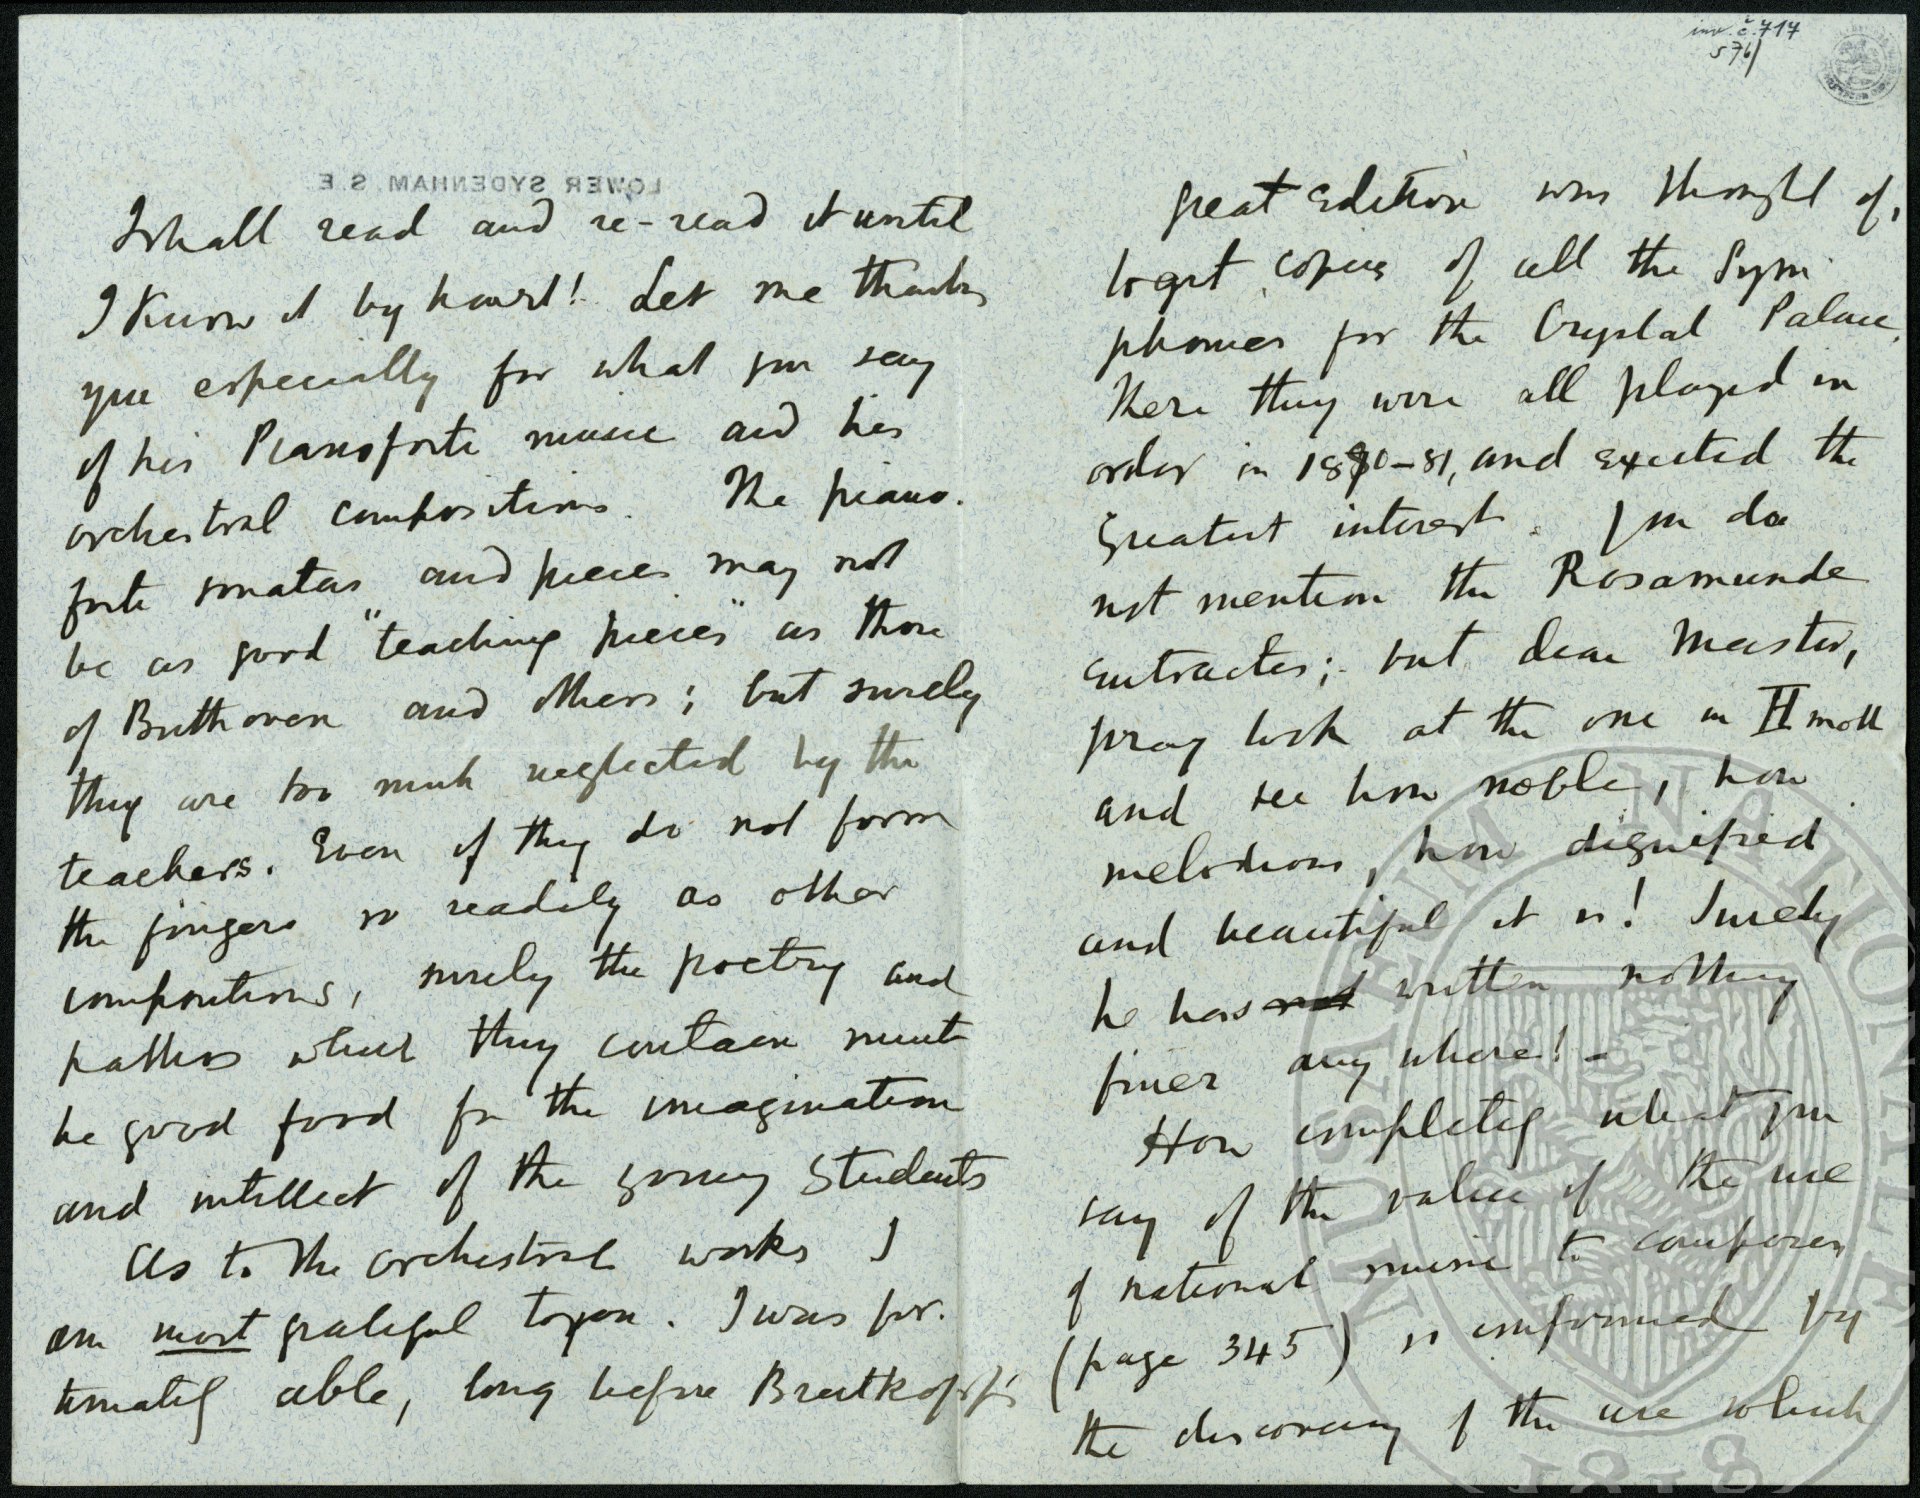 LOWER SYDENHAM. S.E.
I shall read and re-read it until
I know it by heart! Let me thank
you especially for what you say
of his Pianoforte music and his
orchestral compositions. The piano-
forte sonatas and pieces may not
be as good "teaching pieces" as those
of Beethoven and others; but surely
they are too much neglected by the
teachers. Even if they do not form
the fingers so readily as other
compositions, surely the poetry and
pathos which they contain must
be good food for the imagination
and intellect of the young students
As to the orchestral works I
am most grateful to you. I was for-
tunately able, long before Breitkopf's
inv. č. 717
S 76/
great edition was thought of,
to get copies of all the Sym-
phonies for the Crystal Palace.
There they were all played in
order in 1880-81, and excited the
greatest interest. You do
not mention the Rosamunde
entractes; but dear Master,
pray look at the one in H moll
and see how noble, how
melodious, how dignified
and beautiful it is! Surely
he has not written nothing
finer any where! -
How completely what you
say of the value of the use
of national music to composers
(page 345) is confirmed by
the discovery of the use which
MUSEUM NATIONALE
1818